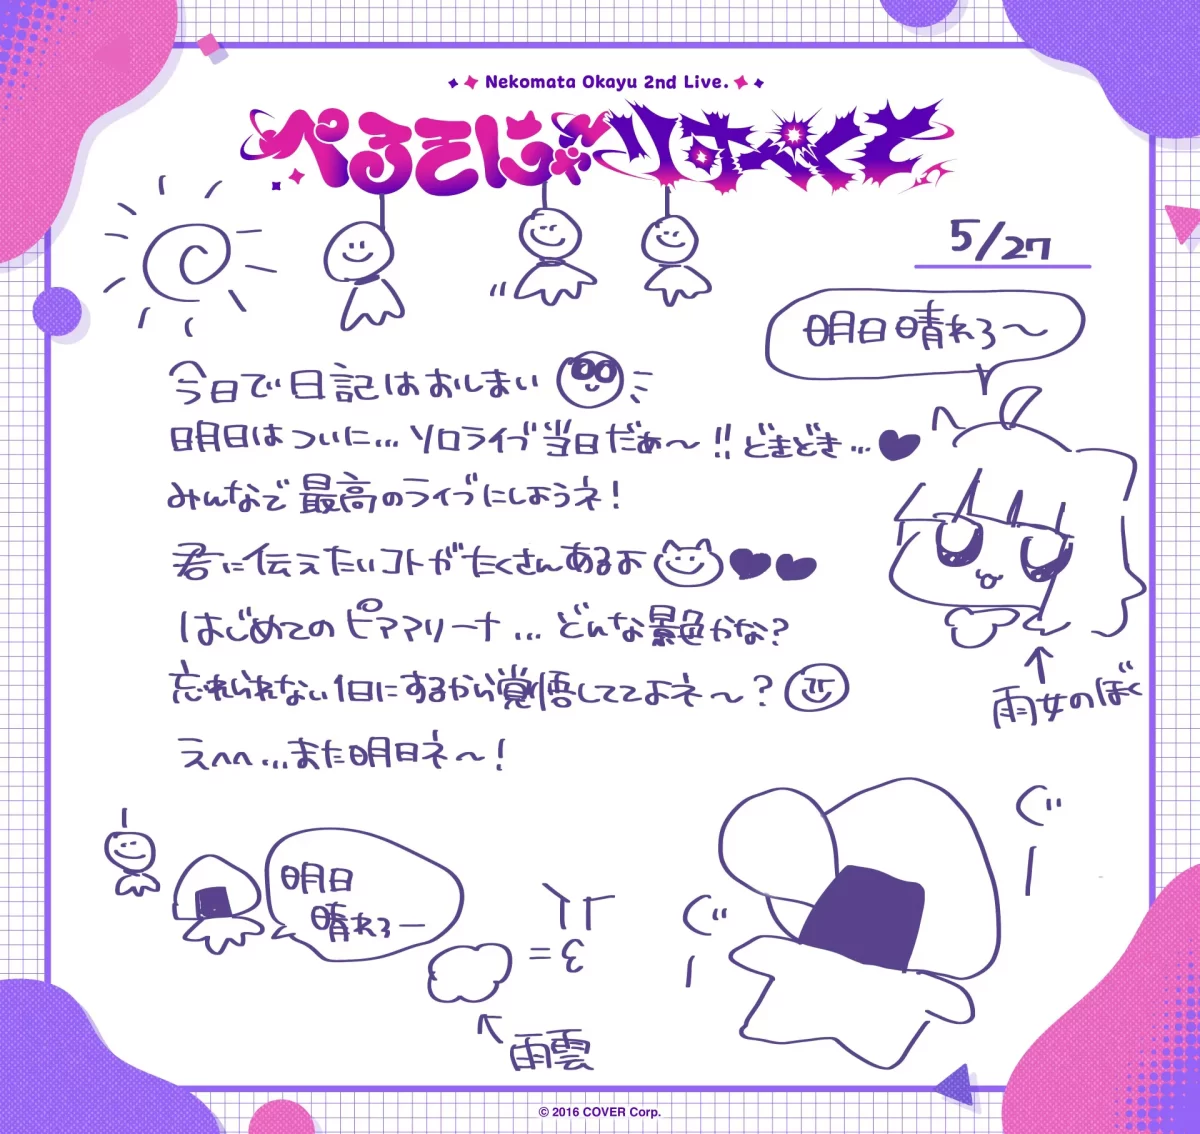 Nekomata Okayu 2nd Live.
ぺるそにゃ~りすぺくと
5/27
明日晴れろ〜
今日で日記はおしまい
明日はついに…ソロライブ当日だぁ〜!!どきどき…
みんなで最高のライブにしようネ!
君に伝えたいコトがたくさんあるよ
はじめてのピアアリーナ…どんな景色かな?
忘れられない1日にするから覚悟しててよネ〜?
えへへ…また明日ネ〜!
雨女のぼく
明日
晴れろー
雨雲
ぐー
ぐー
© 2016 COVER Corp.